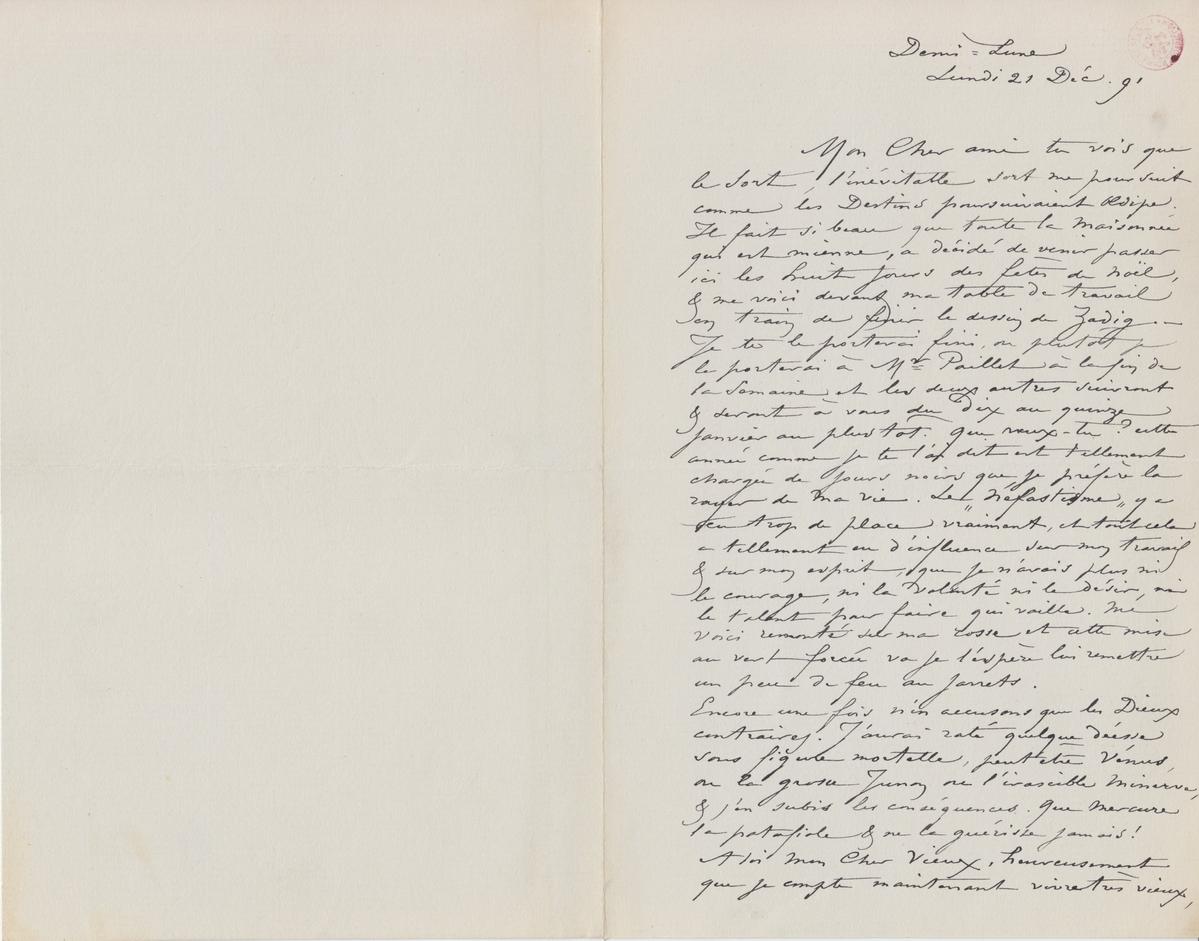 Demi-Lune
Lundi 21 Déc. 91
Mon Cher ami tu vois que
le sort, l'inévitable sort me poursuit
comme les Destins poursuivaient Œdipe.
Il fait si beau que toute la maisonnée
qui est mienne, a décidé de venir passer
ici les huit jours des fêtes de Noël,
& me voici devant ma table de travail
en train de finir le dessin de Zadig. —
Je te le porterai fini, ou plutôt je
le porterai à Mr Paillet à la fin de
la semaine et les deux autres suivront
& seront à vous du dix au quinze
janvier au plus tot. Que veux-tu? cette
année comme je te l'ai dit est tellement
chargée de jours noirs que je préfère la
rayer de ma vie. Le „Néfastisme„ y a
tenu trop de place vraiment, et tout cela
a tellement eu d'influence sur mon travail
& sur mon esprit, que je n'avais plus ni
le courage, ni la volonté ni le désir, ni
le talent pour faire qui vaille. Me
voici remonté sur ma rosse et cette mise
au vert forcée va je l'espère lui remettre
un peu de feu au jarrets.
Encore une fois n'en accusons que les Dieux
contraires. J'aurai raté quelque déesse
sous figure mortelle, peut etre Vénus,
ou la grosse Junon ou l'irascible Minerve,
& j'en subis les conséquences. Que Mercure
la patafiole & ne la guérisse jamais!
A toi mon Cher Vieux, heureusement
que je compte maintenant vivre très vieux,